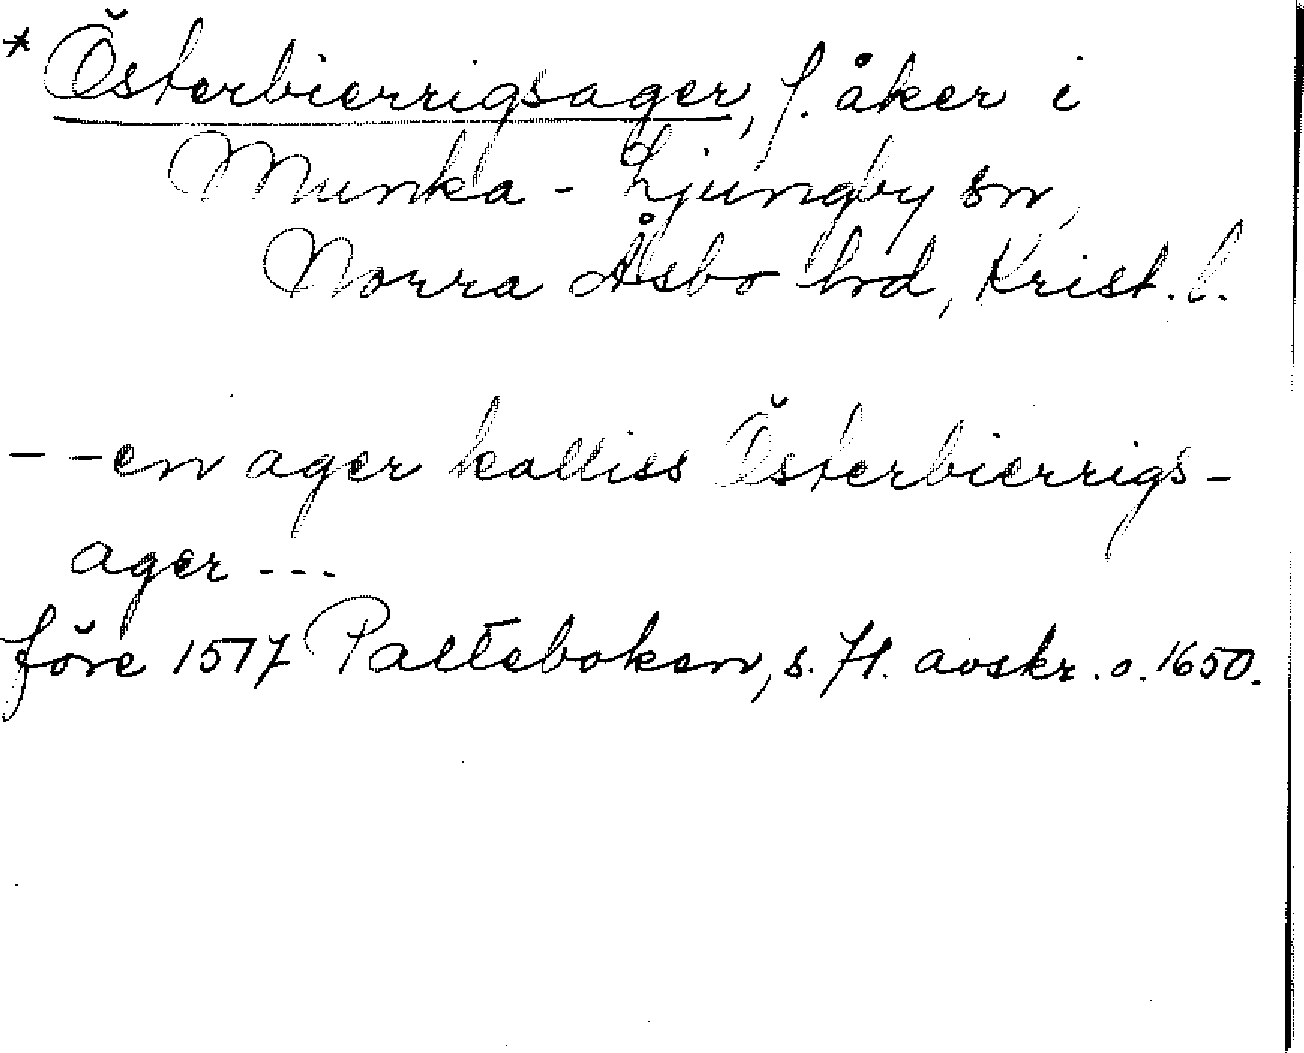 * Österbierrigsager, f. åker i
Munka-Ljungby sn,
Norra Åsbo hd, Krist. l.
- - en ager kalliss Österbierrigs-
ager ---
före 1517 Palteboken, s. 71. avskr. o. 1650.